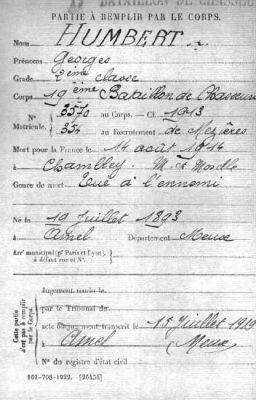 BATAILLON DE CHASSEURS
PARTIE À REMPLIR PAR LE CORPS.
Nom HUMBERT
Prénoms Georges
Grade 2ème classe
Corps 19ème Bataillon de Chasseurs
N° 3570 au Corps. — Cl. 1913
Matricule. 354 au Recrutement de Mézières
Mort pour la France le 14 août 1914
à Chambley M. et Moselle
Genre de mort Tué à l'ennemi
Né le 19 Juillet 1893
à Amel Département Meuse
Arr' municipal (p' Paris et Lyon),
à défaut rue et N°.
Cette partie n'est pas à remplir par le Corps.
Jugement rendu le
par le Tribunal de
acte ou jugement transcrit le 15 Juillet 1919
à Amel (Meuse)
N° du registre d'état civil
101-708-1922. [26434]